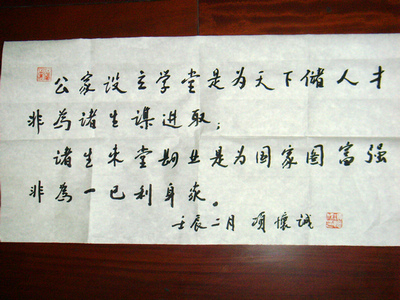 公家设立学堂是为天下储人才
非为诸生谋进取；
诸生来堂肄业是为国家图富强
非为一己利身家。
壬辰二月 项怀诚